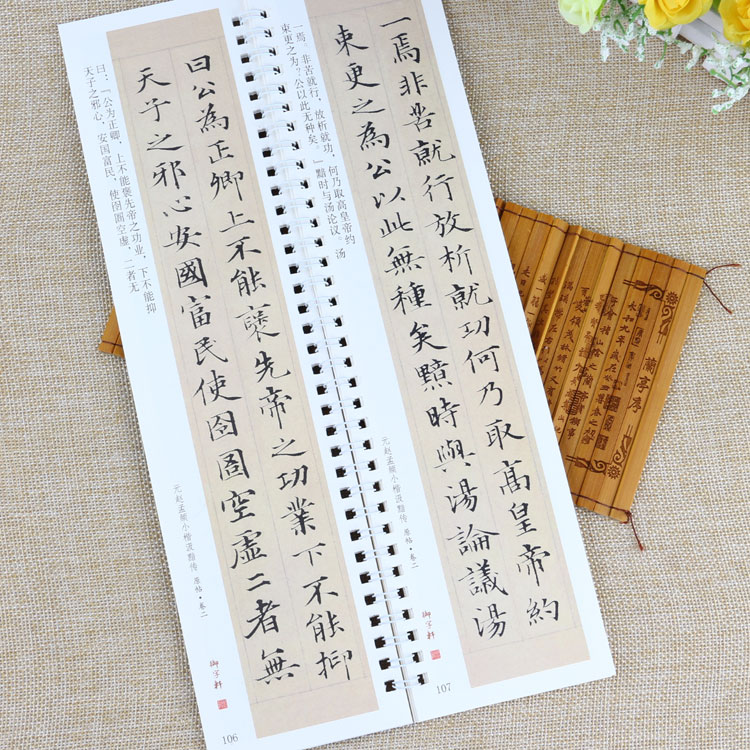 曰公為正卿上不能襃先帝之功業下不能抑
天子之邪心安國富民使囹圄空虛二者無
曰：「公为正卿，上不能褒先帝之功业，下不能抑
天子之邪心，安国富民，使囹圄空虚，二者无
元赵孟頫小楷汲黯传 原帖·卷二
御字軒
106
一焉非苦就行放析就功何乃取高皇帝約
束更之為公以此無種矣黯時與湯論議湯
一焉。非苦就行，放析就功，何乃取高皇帝约
束更之为？公以此无种矣。」黯时与汤论议。汤
元赵孟頫小楷汲黯传 原帖·卷二
御字軒
107
蘭亭序
永和九年歲在